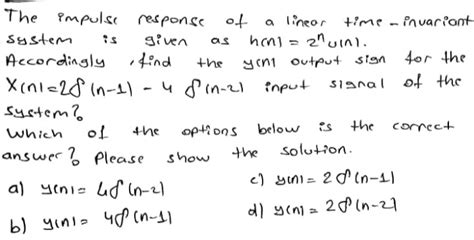 The impulse response of a linear time-invariant
system is given as h(n) = 2ⁿu(n).
Accordingly, find the y(n) output sign for the
X(n) = 2δ(n-1) - 4δ(n-2) input signal of the
system?
Which of the options below is the correct
answer? Please show the solution.
a) y(n) = 4δ(n-2)
c) y(n) = 2δ(n-1)
b) y(n) = 4δ(n-1)
d) y(n) = 2δ(n-2)